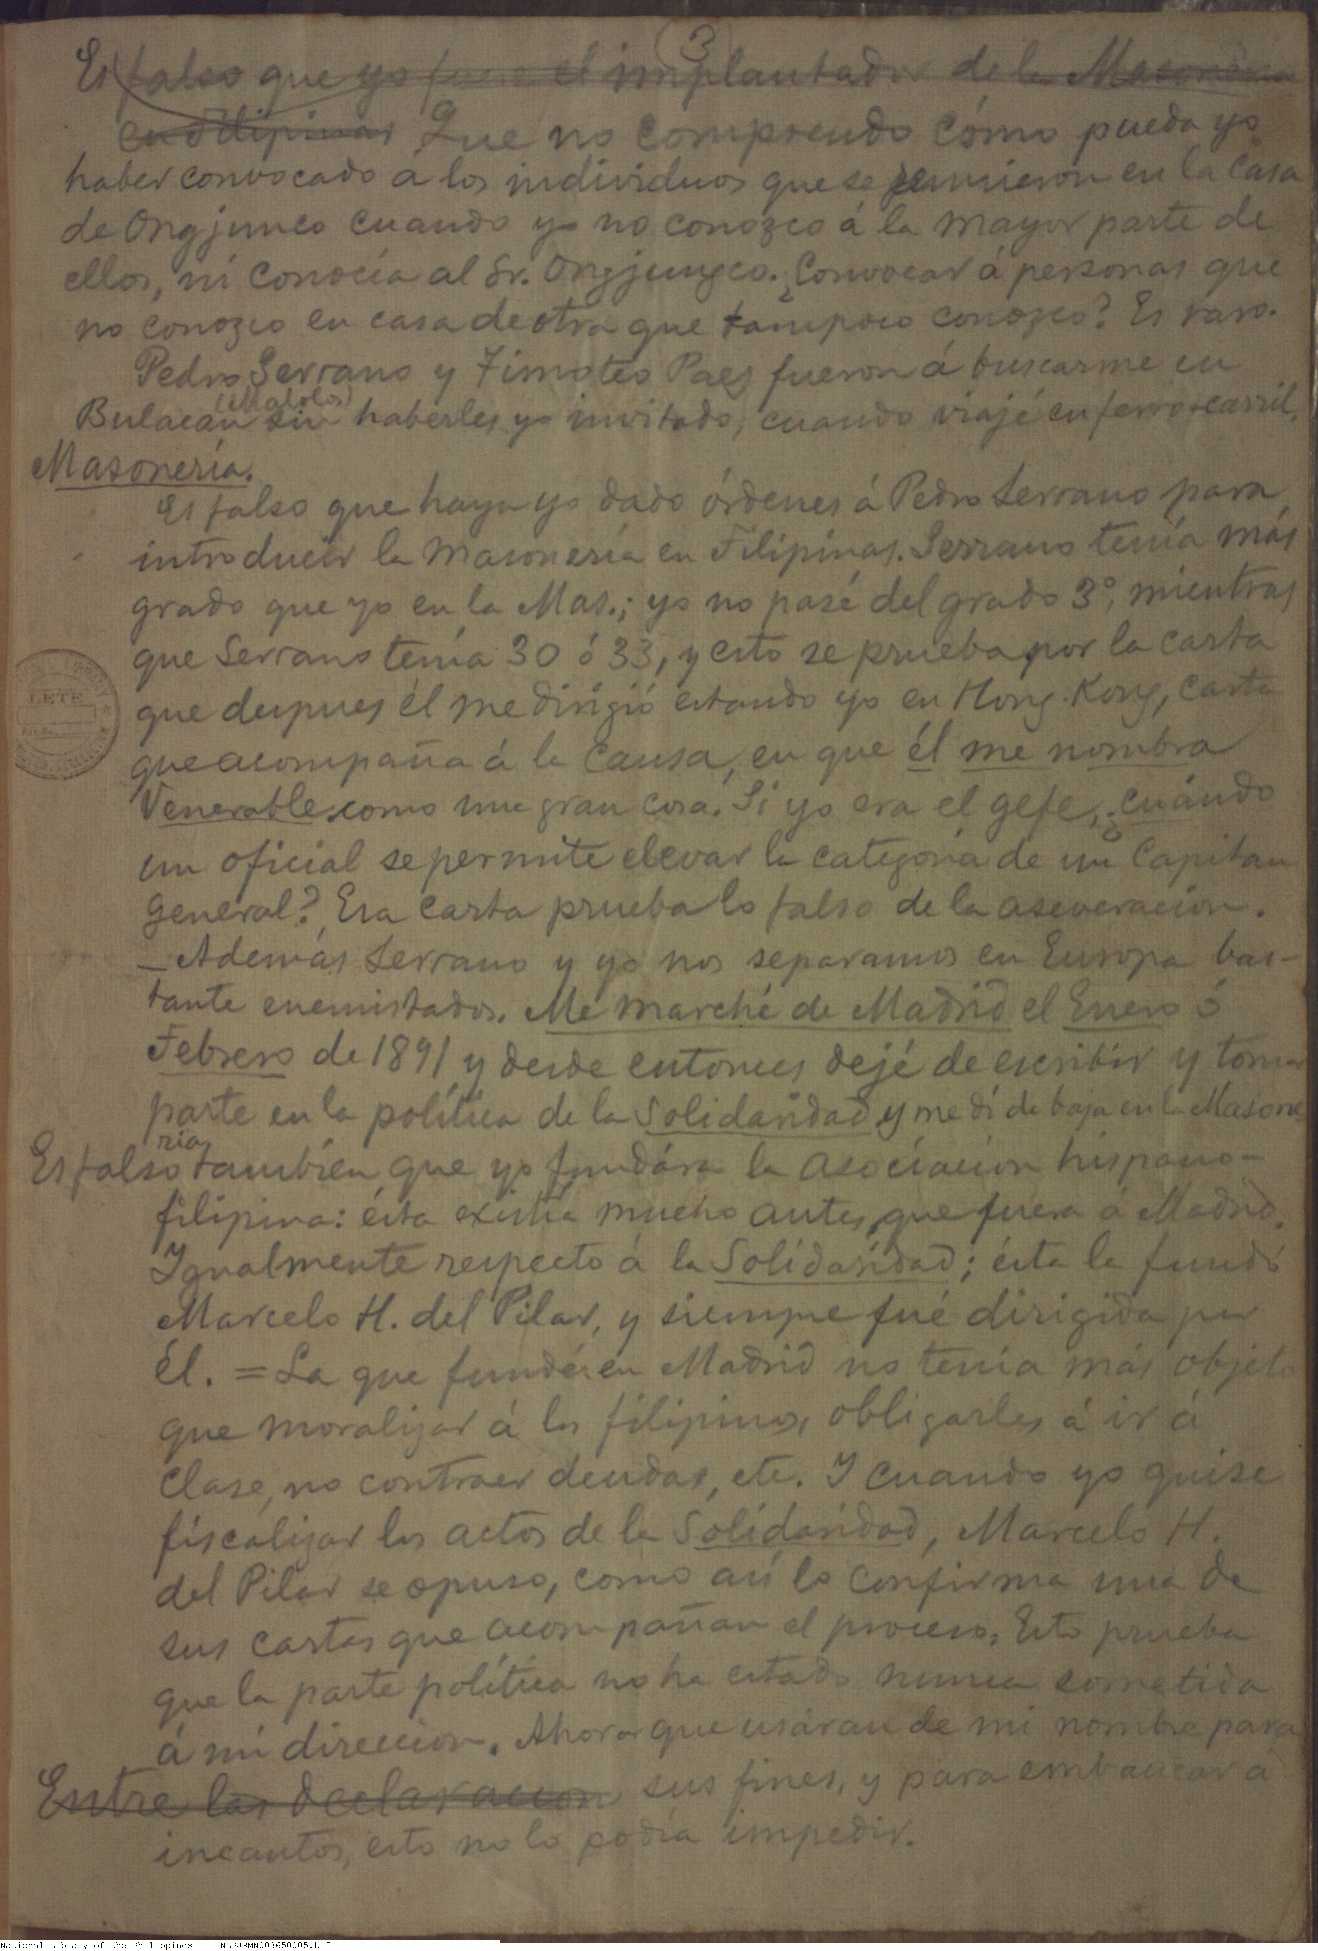 3
Es falso que yo fuera el implantador de la Masonería
en Filipinas Que no comprendo cómo pueda yo
haber convocado á los individuos que se reunieron en la casa
de Ongjunco cuando yo no conozco á la mayor parte de
ellos, ni conocía al Sr. Ongjungco. ¿Convocar á personas que
no conozco en casa de otra que tampoco conozco? Es raro.
Pedro Serrano y Timoteo Paez fueron á buscarme en
(Malolos)
Bulacán sin haberles yo invitado, cuando viajé en ferro-carril.
Masonería.
Es falso que haya yo dado órdenes á Pedro Serrano para
introducir la Masonería en Filipinas. Serrano tenía más
grado que yo en la Mas.; yo no pasé del grado 3º, mientras
que Serrano tenía 30 ó 33, y esto se prueba por la carta
que despues él me dirigió estando yo en Hong-Kong, carta
que acompaña á la causa, en que él me nombra
Venerable como una gran cosa. Si yo era el gefe, ¿cuándo
un oficial se permite elevar la categoría de un Capitan
General? Esa carta prueba lo falso de la aseveracion.
— Además Serrano y yo nos separamos en Europa bas-
tante enemistados. Me marché de Madrid el Enero ó
Febrero de 1891 y desde entonces dejé de escribir y tomar
parte en la política de la Solidaridad y me dí de baja en la Masone
ría
Es falso tambíen que yo fundára la asociacion hispano-
filipina: ésta existía mucho antes que fuera á Madrid.
Igualmente respecto á la Solidaridad; ésta la fundó
Marcelo H. del Pilar, y siempre fué dirigida por
Él. = La que fundé en Madrid no tenía más objeto
que moralizar á los filipinos, obligarles á ir á
clase, no contraer deudas, etc. Y cuando yo quise
fiscalizar los actos de la Solidaridad, Marcelo H.
del Pilar se opuso, como así lo confirma una de
sus cartas que acompañan el proceso. Esto prueba
que la parte política no ha estado nunca sometida
á mi direccion. Ahora que usáran de mi nombre para
Entre las declaracion sus fines, y para embaucar á
incautos, esto no lo podía impedir.
National Library of the Philippines